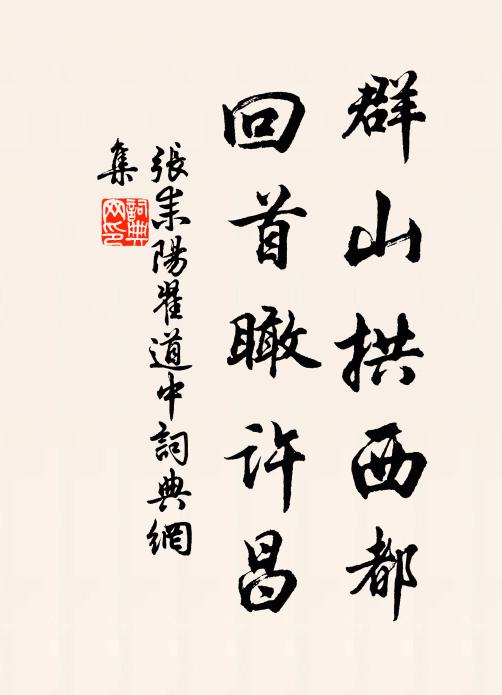 群山拱西都
回首瞰许昌
張耒陽翟道中詞典網
集
詞典网印